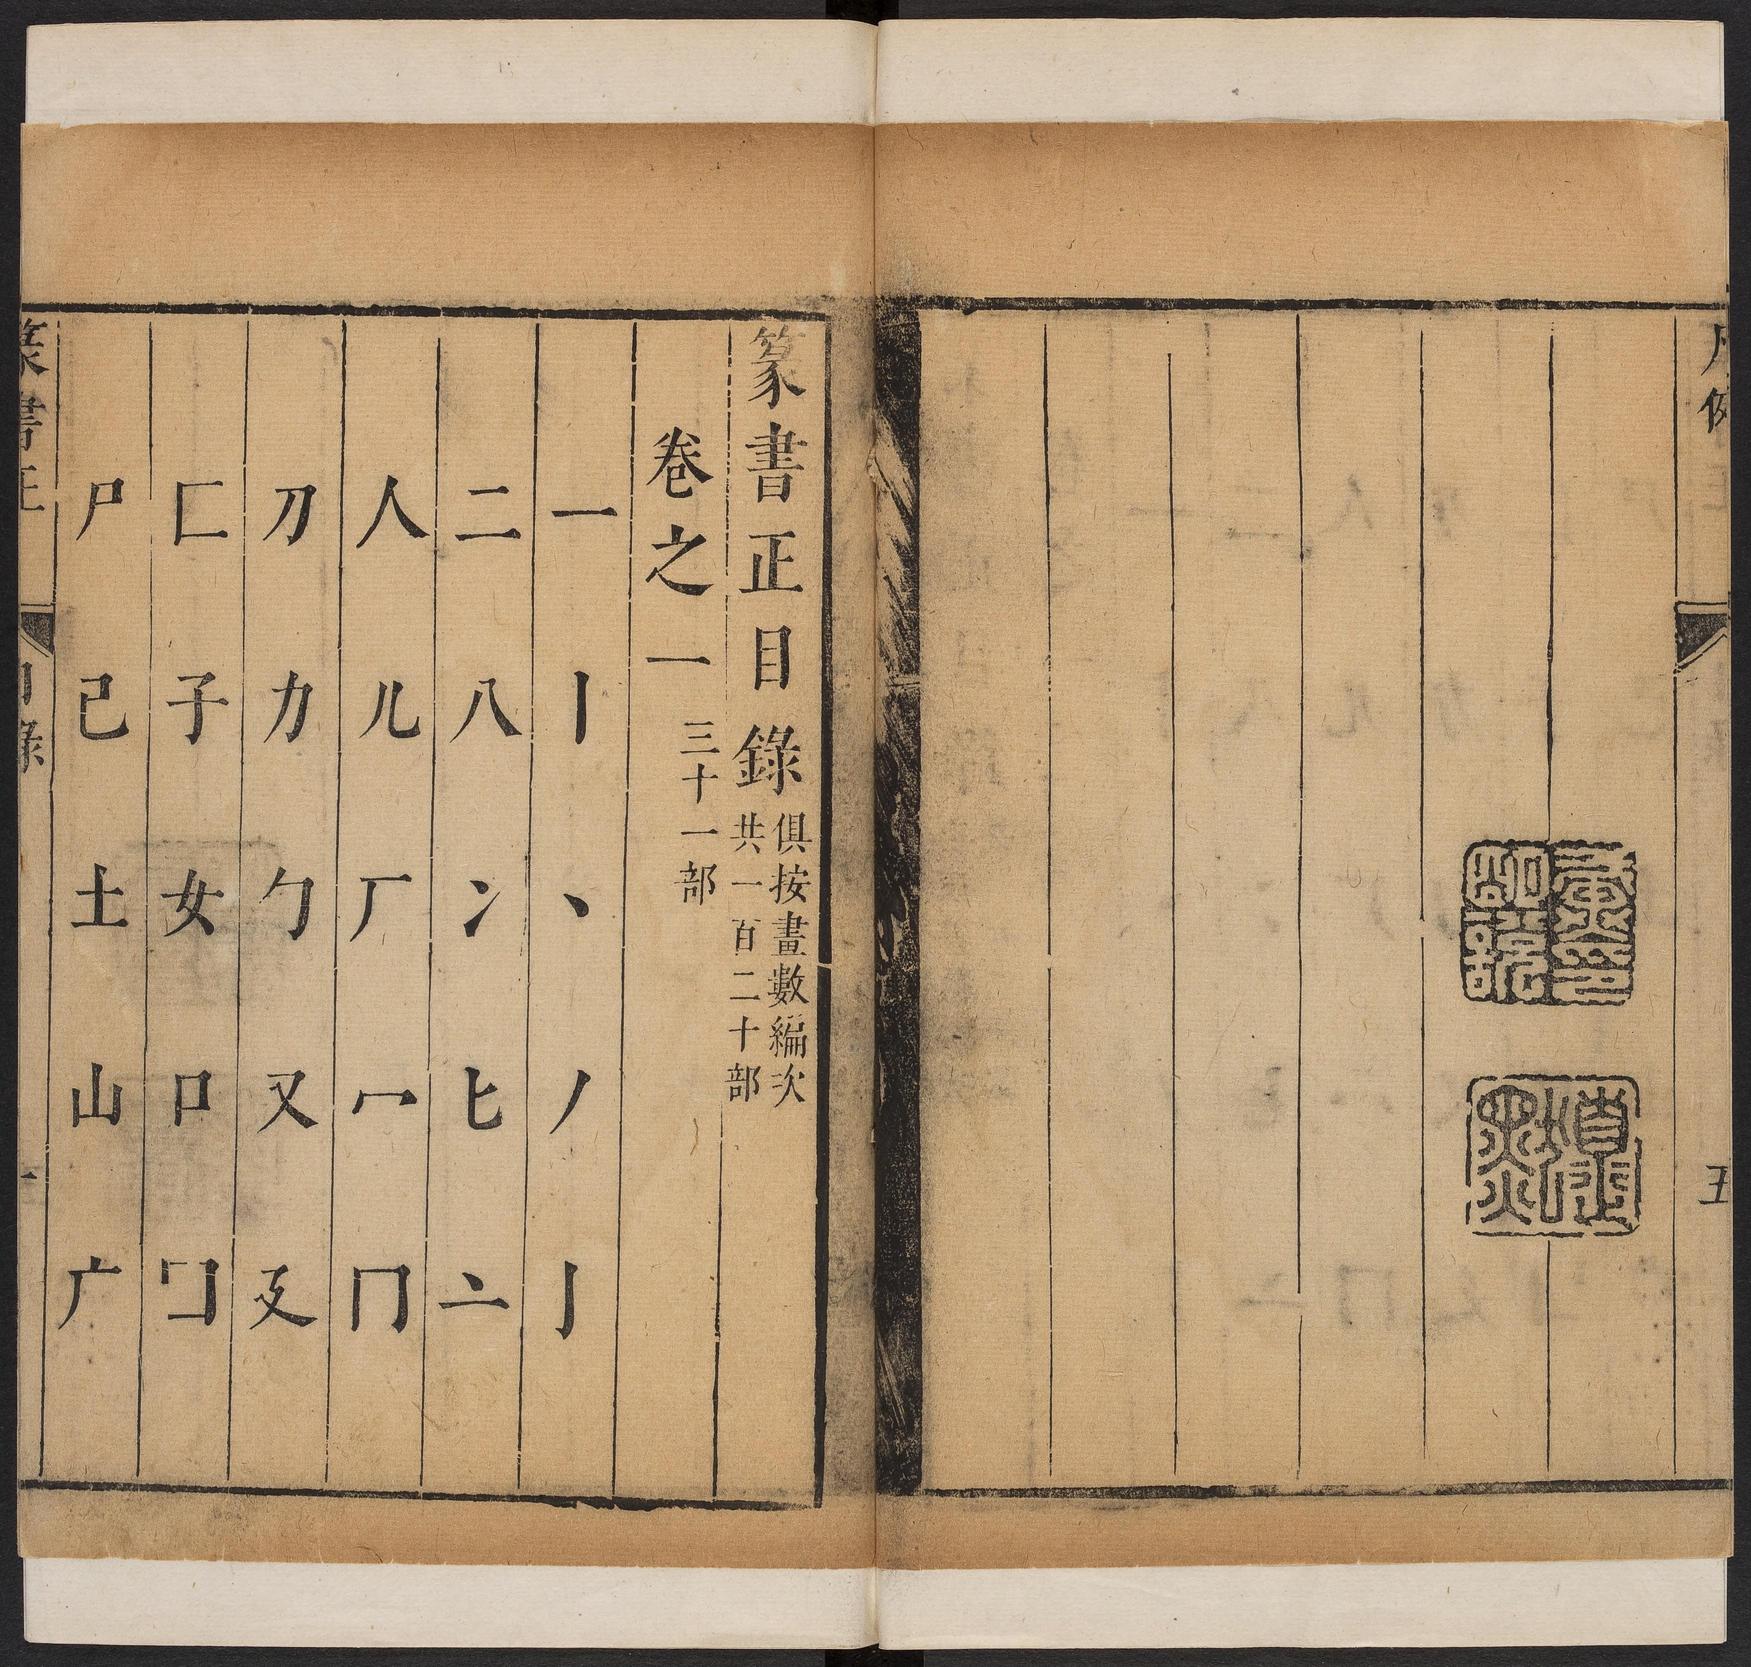 凡例
五
篆書正目錄 俱按畫數編次
共一百二十部
卷之一 三十一部
一 丨 丶 丿 亅
二 八 冫 匕 亠
人 儿 厂 冖 冂
刀 力 勹 又 廴
匚 子 女 口 𠃛
尸 己 土 山 广
篆書正
目錄
一